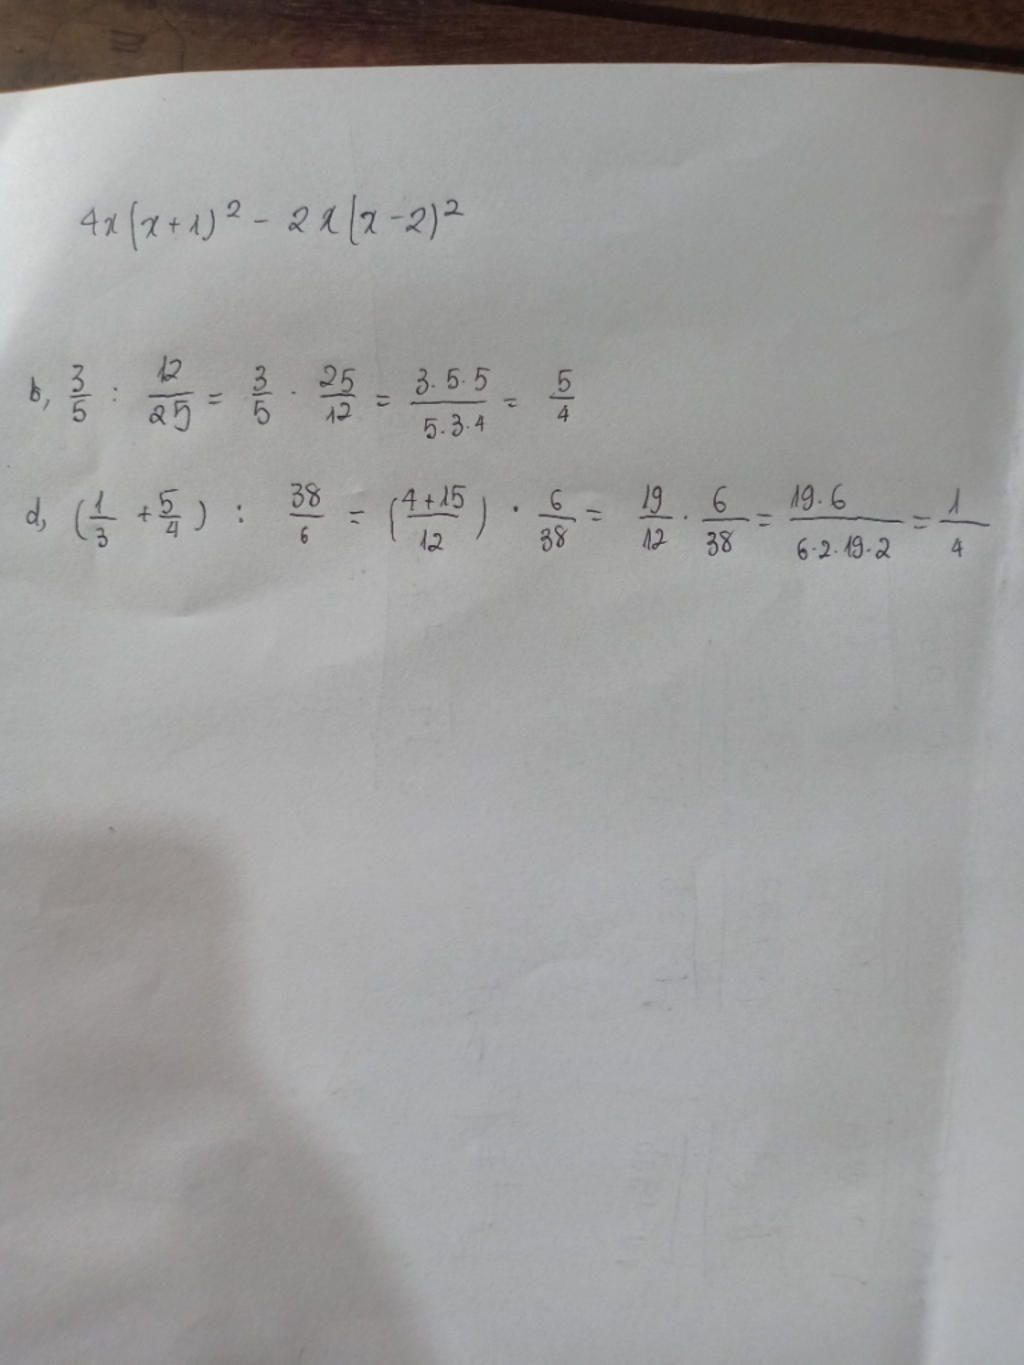 4x(x+1)² - 2x(x-2)²
b, 3/5 : 12/25 = 3/5 · 25/12 = 3.5.5/5.3.4 = 5/4
d, (1/3 + 5/4) : 38/6 = (4+15/12) · 6/38 = 19/12 · 6/38 = 19.6/6.2.19.2 = 1/4